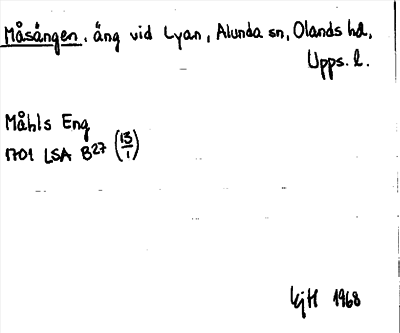 Måsängen. äng vid Lyan, Alunda sn, Olands hd,
Upps. l.
Måhls Eng
1701 LSA B27 (13/1)
1968